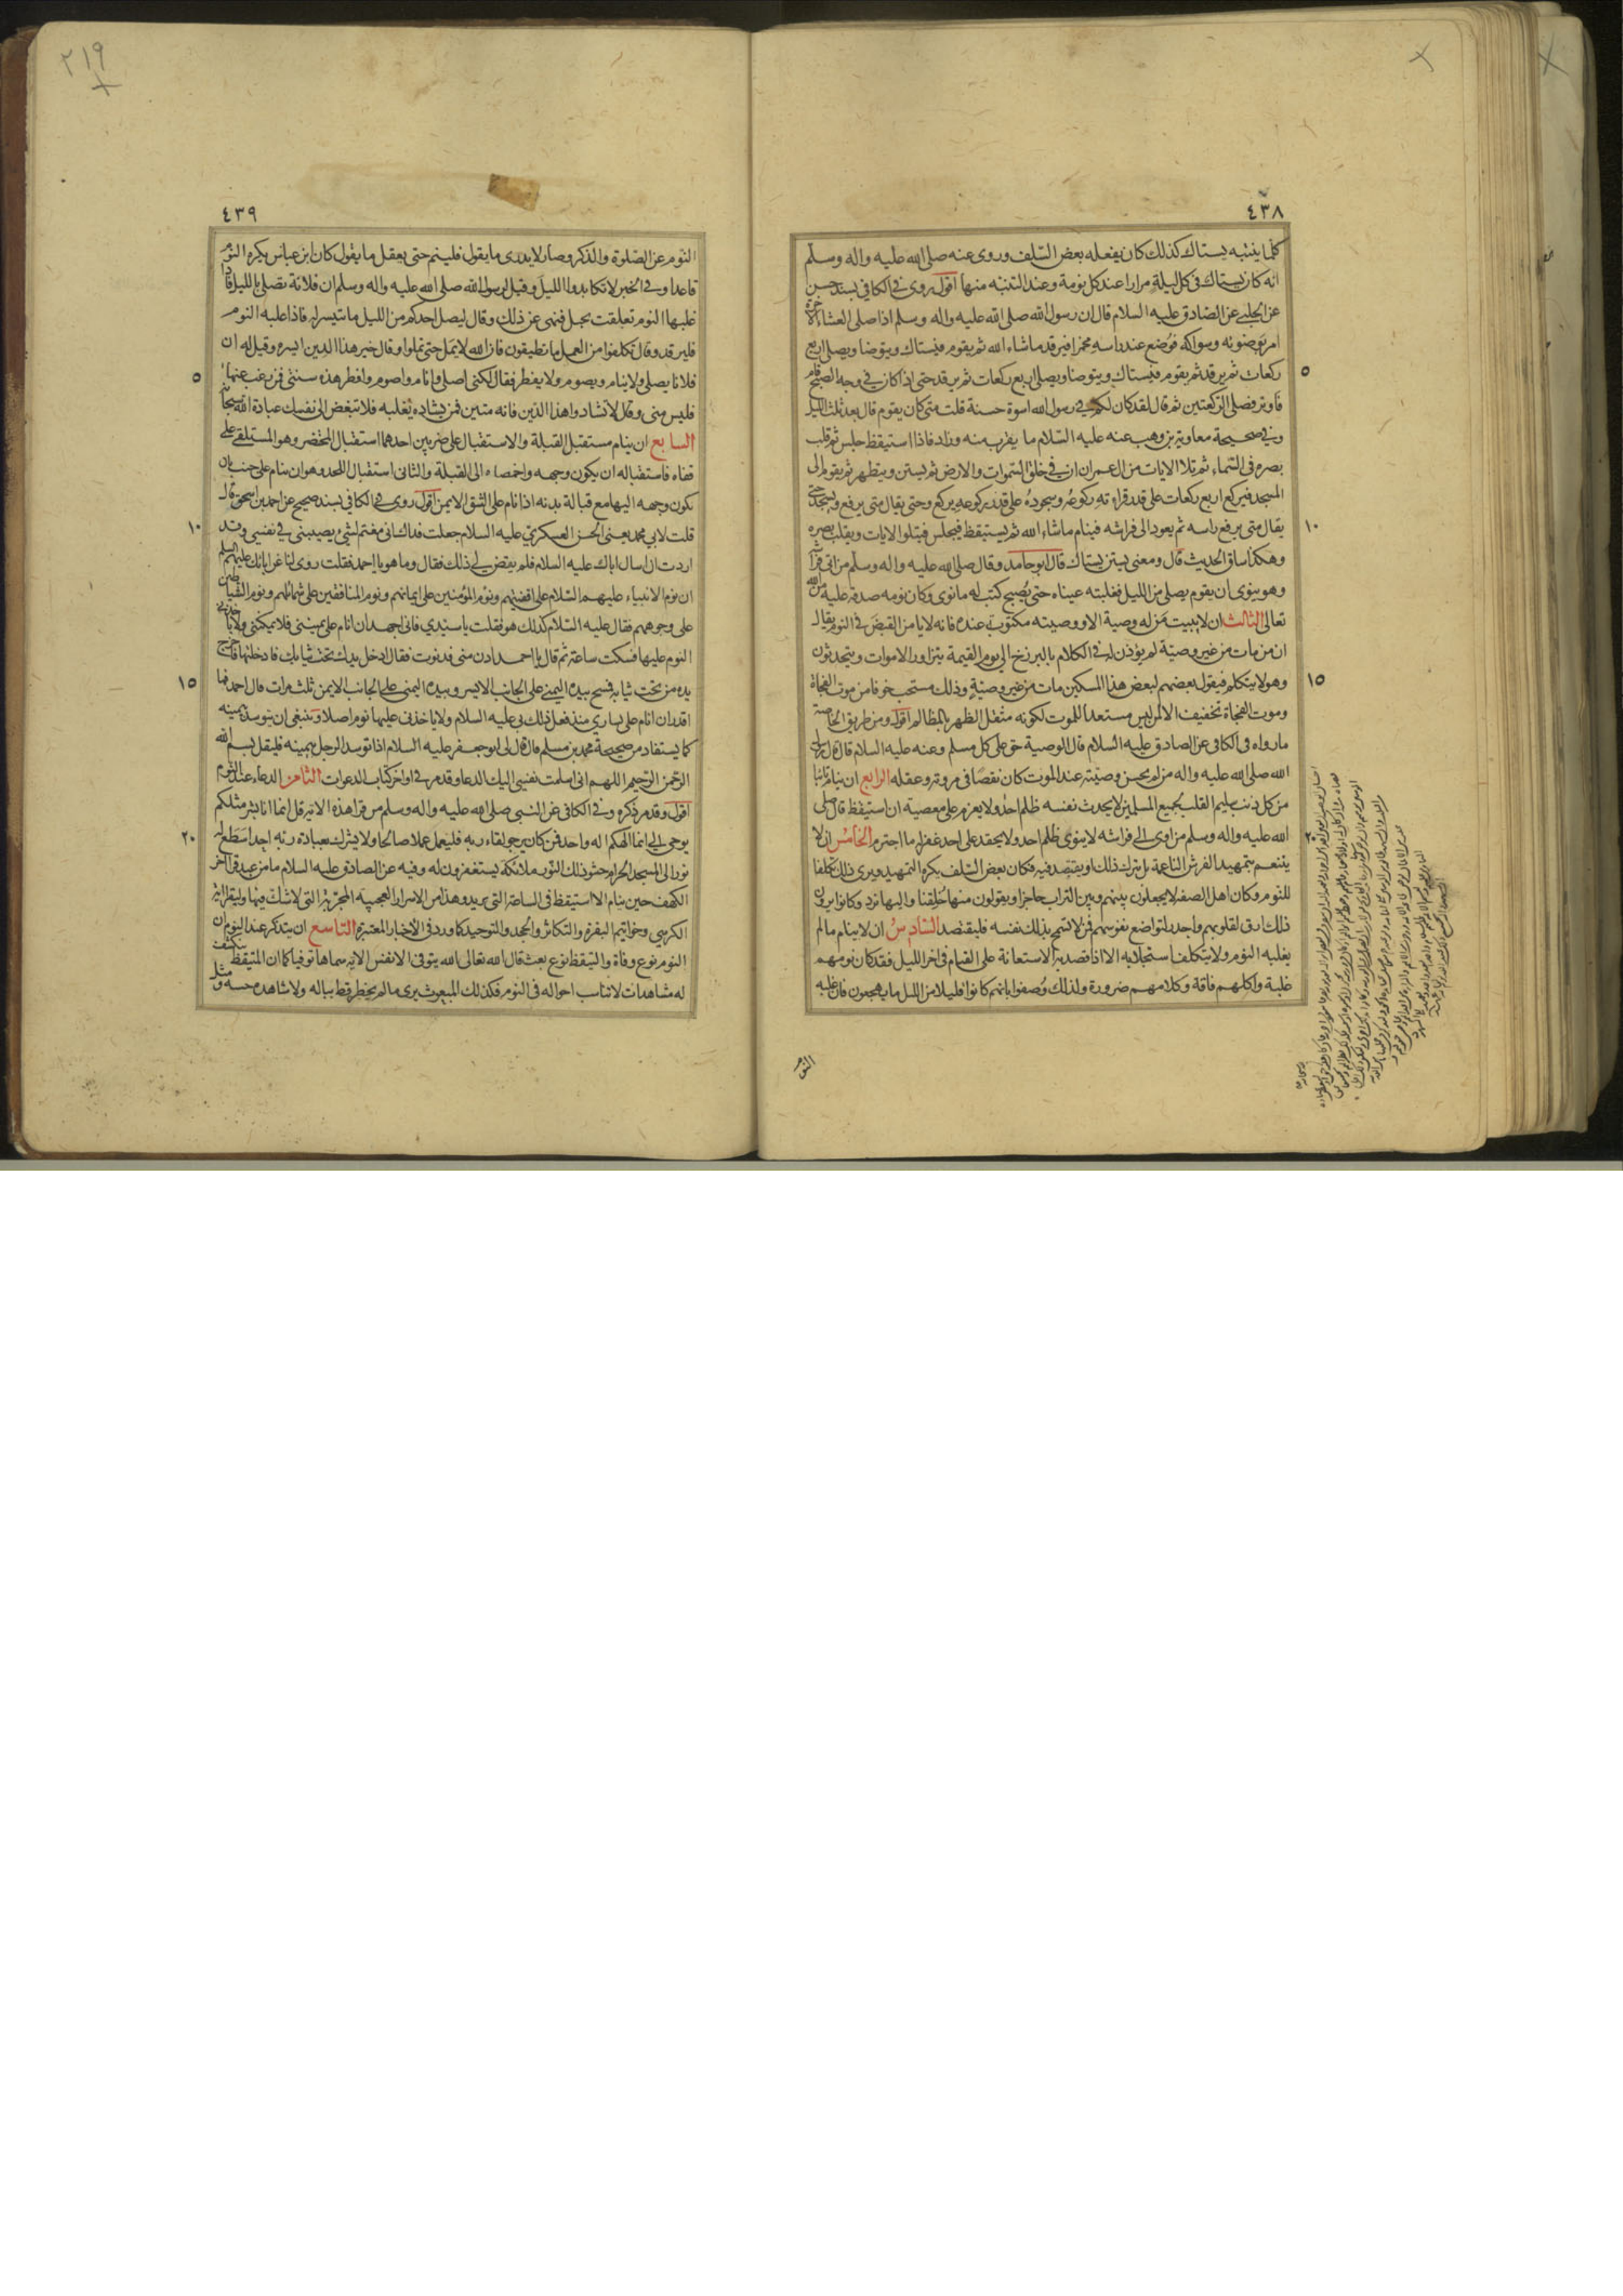 ٤٣٨
كلما ينتبه يستاك كذلك كان يفعله بعض السلف وروى عنه صلى الله عليه واله وسلم
انه كان يستاك فى كل ليلة مرارا عند كل نومة وعند التنبه منها اقول روى فى الكافي بسند حسن
عن الحلبي عن الصادق عليه السلام قال ان رسول الله صلى الله عليه واله وسلم اذا صلى العشاء الاخرة
امر بوضوئه وسواكه فوضع عند راسه مخمرا فيرقد ما شاء الله ثم يقوم فيستاك ويتوضا ويصلى اربع
ركعات ثم يرقد ثم يقوم فيستاك ويتوضا ويصلى اربع ركعات ثم يرقد حتى اذا كان في وجه الصبح قام
فاوتر فصلى الركعتين ثم قال لقد كان لكم في رسول الله اسوة حسنة قلت متى كان يقوم قال بعد ثلث الليل
وفي صحيحة معاوية بن وهب عنه عليه السلام ما يقرب منه وزاد فاذا استيقظ جلس ثم قلب
بصره فى السماء ثم تلا الايات من ال عمران ان في خلق السموات والارض ثم يستن ويتطهر ثم يقوم الى
المسجد فيركع اربع ركعات على قدر قراءته ركوعه وسجوده على قدر ركوعه يركع وحتى يقال متى يرفع ويسجد حتى
يقال متى يرفع راسه ثم يعود الى فراشه فينام ما شاء الله ثم يستيقظ فيجلس فيتلو الايات ويقلب بصره
وهكذا ساق الحديث قال ومعنى يستن يستاك قال ابو حامد وقال صلى الله عليه واله وسلم من اتى فراشه
وهو ينوى ان يقوم يصلى من الليل فغلبته عيناه حتى يصبح كتب له ما نوى وكان نومه صدقة عليه من الله
تعالى الثالث ان لا يبيت من له وصية الا ووصيته مكتوبة عنده فانه لا يامن القبض في النوم يقال
ان من مات من غير وصية لم يؤذن له في الكلام بالبرزخ الى يوم القيمة يتزاور الاموات ويتحدثون
وهو لا يتكلم فيقول بعضهم لبعض هذا المسكين مات من غير وصية وذلك مستحب خوفا من موت الفجاة
وموت الفجاة تخفيف الا لمن ليس مستعدا للموت لكونه مثقل الظهر بالمظالم اقول ومن طريق الخاصة
ما رواه فى الكافى عن الصادق عليه السلام قال الوصية حق على كل مسلم وعنه عليه السلام قال قال رسول
الله صلى الله عليه واله من لم يحسن وصيته عند الموت كان نقصا فى مروته وعقله الرابع ان ينام تائبا
من كل ذنب سليم القلب لجميع المسلمين لا يحدث نفسه ظلم احد ولا يعزم على معصية ان استيقظ قال صلى
الله عليه واله وسلم من اوى الى فراشه لا ينوى ظلم احد ولا يحقد على احد غفر له ما اجترم الخامس ان لا
يتنعم بتمهيد الفرش الناعمة بل يترك ذلك او يقتصد فيه فكان بعض السلف يكره التمهيد ويرى ذلك تكلفا
للنوم وكان اهل الصفه لا يجعلون بينهم وبين التراب حاجزا ويقولون منها خلقنا واليها نرد وكانوا يرون
ذلك ارق لقلوبهم واجدر لتواضع نفوسهم فمن لا تسمح بذلك نفسه فليقتصد السادس ان لا ينام ما لم
يغلبه النوم ولا يتكلف استجلابه الا اذا قصد به الاستعانة على القيام فى اخر الليل فقد كان نومهم
غلبة واكلهم فاقة وكلامهم ضرورة ولذلك وصفوا بانهم كانوا قليلا من الليل ما يهجعون فان غلبه
النوم
٥
١٠
١٥
٢٠
٢١٩
٤٣٩
النوم عن الصلوة والذكر وصار لا يدرى ما يقول فلينم حتى يعقل ما يقول كان ابن عباس يكره النوم
قاعدا وفي الخبر لا تكابدوا الليل وقيل لرسول الله صلى الله عليه واله وسلم ان فلانة تصلى بالليل فاذا
غلبها النوم تعلقت بحبل فنهى عن ذلك وقال ليصل احدكم من الليل ما تيسر له فاذا غلبه النوم
فليرقد وقال تكلفوا من العمل ما تطيقون فان الله لا يمل حتى تملوا وقال خير هذا الدين ايسره وقيل له ان
فلانا يصلى ولا ينام ويصوم ولا يفطر فقال لكنى اصلى وانام واصوم وافطر هذه سنتى فمن رغب عنها
فليس منى وقال لا تشادوا هذا الدين فانه متين فمن يشاده يغلبه فلا تبغض الى نفسك عبادة الله
السابع ان ينام مستقبل القبلة والاستقبال على ضربين احدهما استقبال المحتضر وهو المستلقي على
قفاه فاستقباله ان يكون وجهه واخمصاه الى القبلة والثانى استقبال اللحد وهو ان ينام على جنب بان
يكون وجهه اليها مع قبالة بدنه اذا نام على الشق الايمن اقول روى في الكافي بسند صحيح عن احمد بن اسحق قال
قلت لابي محمد يعنى الحسن العسكري عليه السلام جعلت فداك انى مغتم لشئ يصيبنى في نفسي وقد
اردت ان اسال اباك عليه السلام فلم يقض لي ذلك فقال وما هو يا احمد فقلت روى لنا عن ابائك عليهم السلم
ان نوم الانبياء عليهم السلام على اقفيتهم ونوم المؤمنين على ايمانهم ونوم المنافقين على شمائلهم ونوم الشياطين
على وجوههم فقال عليه السلام كذلك هو فقلت يا سيدي فانى اجهد ان انام على يمينى فلا يمكننى ولا ياخذنى
النوم عليها فسكت ساعة ثم قال يا احمد ادن منى فدنوت فقال ادخل يدك تحت ثيابك فادخلتها فاخرج
يده من تحت ثيابه فمسح بيده اليمنى على الجانب الايسر وبيده اليمنى على الجانب الايمن ثلث مرات قال احمد فما
اقدر ان انام على يساري منذ فعل ذلك بى عليه السلام ولا ياخذنى عليها نوم اصلا وينبغى ان يتوسد يمينه
كما يستفاد من صحيحة محمد بن مسلم قال قال لى ابو جعفر عليه السلام اذا توسد الرجل يمينه فليقل بسم الله
الرحمن الرحيم اللهم انى اسلمت نفسى اليك الدعا وقد مر في اواخر كتاب الدعوات الثامن الدعاء عند النوم
اقول وقد مر ذكره وفي الكافى عن النبي صلى الله عليه واله وسلم من قرا هذه الاية قل انما انا بشر مثلكم
يوحى الى انما الهكم اله واحد فمن كان يرجو لقاء ربه فليعمل عملا صالحا ولا يشرك بعبادة ربه احدا سطع له
نور الى المسجد الحرام حشو ذلك النور ملائكة يستغفرون له وفيه عن الصادق عليه السلام ما من عبد قرا اخر
الكهف حين ينام الا استيقظ فى الساعة التى يريد وهذا من الاسرار العجيبه المجربة التى لا شك فيها وليقرا اية
الكرسى وخواتيم البقرة والتكاثر والجحد والتوحيد كما ورد فى الاخبار المعتبرة التاسع ان يتذكر عند النوم ان
النوم نوع وفاة والتيقظ نوع بعث قال الله تعالى الله يتوفى الانفس الاية سماها توفيا كما ان المتيقظ ينكشف
له مشاهدات لا تناسب احواله فى النوم فكذلك المبعوث يرى ما لم يخطر قط بباله ولا شاهده حسه ومثل
٥
١٠
١٥
٢٠